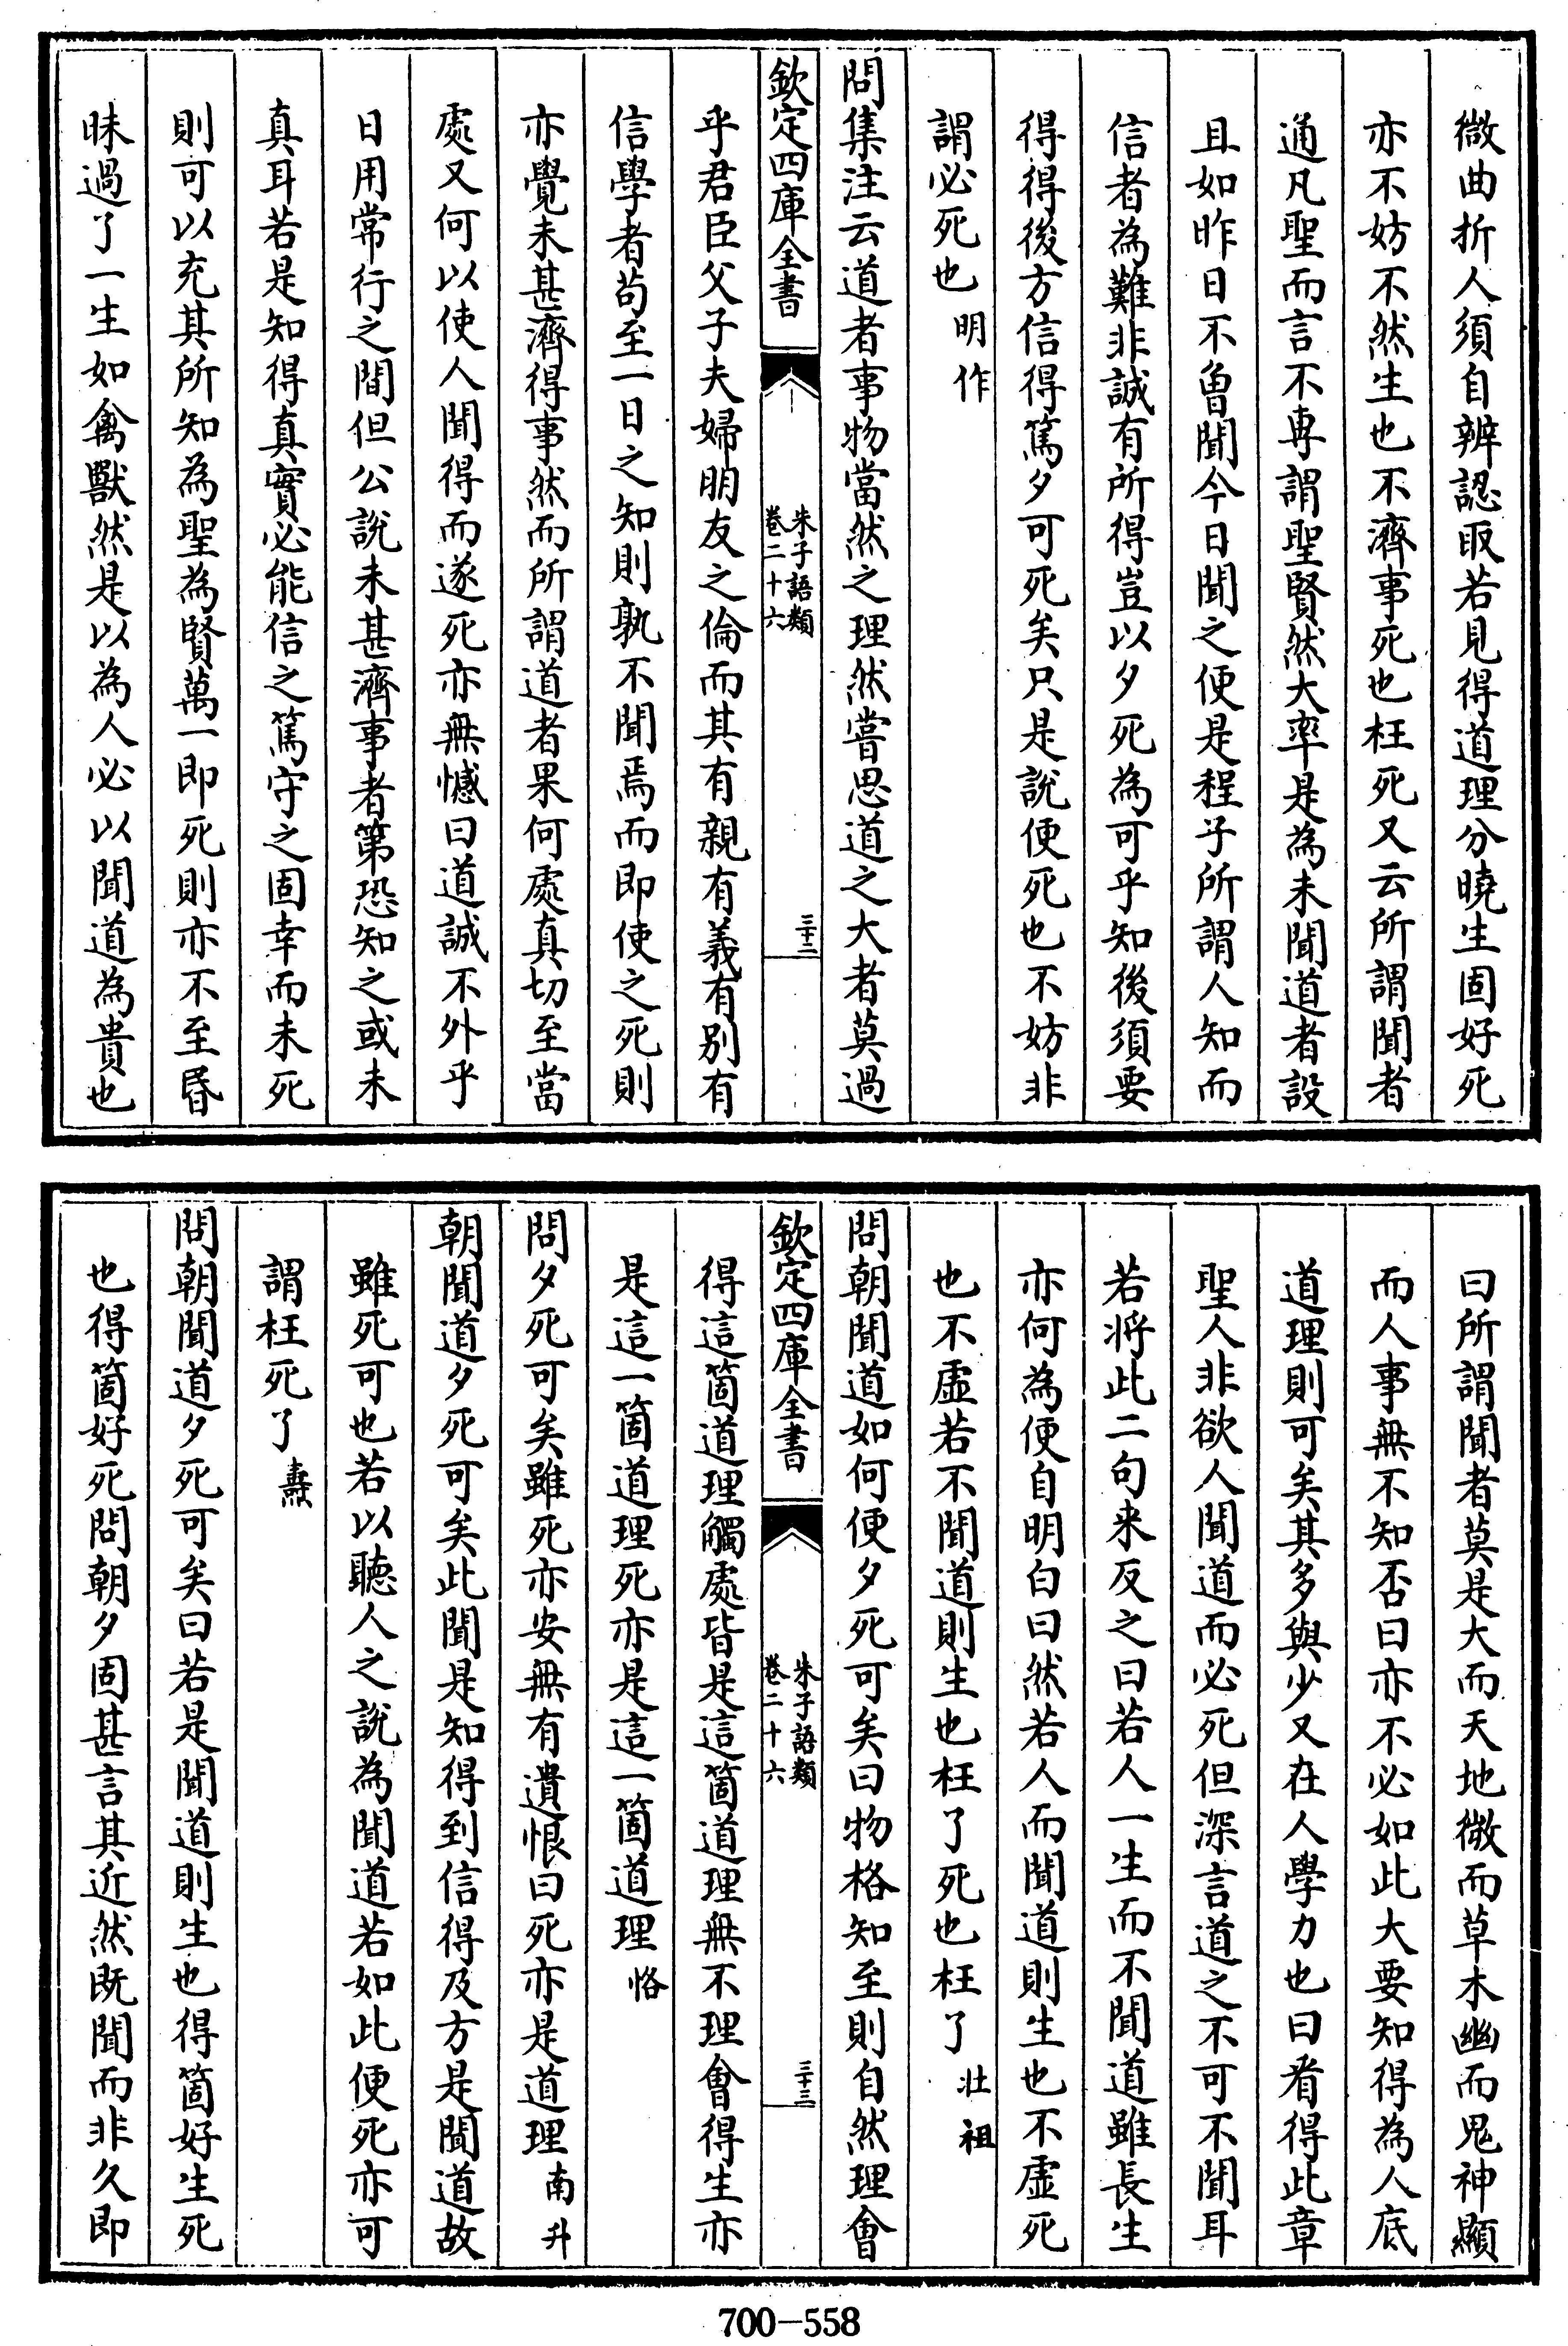 微曲折人須自辨認取若見得道理分曉生固好死
亦不妨不然生也不濟事死也枉死又云所謂聞者
通凡聖而言不專謂聖賢然大率是為未聞道者設
且如昨日不曾聞今日聞之便是程子所謂人知而
信者為難非誠有所得豈以夕死為可乎知後須要
得得後方信得篤夕可死矣只是說便死也不妨非
謂必死也明作
問集注云道者事物當然之理然嘗思道之大者莫過
欽定四庫全書
朱子語類
卷二十六
三十二
乎君臣父子夫婦朋友之倫而其有親有義有别有
信學者苟至一日之知則孰不聞焉而即使之死則
亦覺未甚濟得事然而所謂道者果何處真切至當
處又何以使人聞得而遂死亦無憾曰道誠不外乎
日用常行之間但公說未甚濟事者第恐知之或未
真耳若是知得真實必能信之篤守之固幸而未死
則可以充其所知為聖為賢萬一即死則亦不至昏
昧過了一生如禽獸然是以為人必以聞道為貴也
曰所謂聞者莫是大而天地微而草木幽而鬼神顯
而人事無不知否曰亦不必如此大要知得為人底
道理則可矣其多與少又在人學力也曰看得此章
聖人非欲人聞道而必死但深言道之不可不聞耳
若將此二句来反之曰若人一生而不聞道雖長生
亦何為便自明白曰然若人而聞道則生也不虛死
也不虛若不聞道則生也枉了死也枉了壯祖
問朝聞道如何便夕死可矣曰物格知至則自然理會
欽定四庫全書
朱子語類
卷二十六
三十三
得這箇道理觸處皆是這箇道理無不理會得生亦
是這一箇道理死亦是這一箇道理恪
問夕死可矣雖死亦安無有遺恨曰死亦是道理南升
朝聞道夕死可矣此聞是知得到信得及方是聞道故
雖死可也若以聽人之說為聞道若如此便死亦可
謂枉死了燾
問朝聞道夕死可矣曰若是聞道則生也得箇好生死
也得箇好死問朝夕固甚言其近然既聞而非久即
700-558